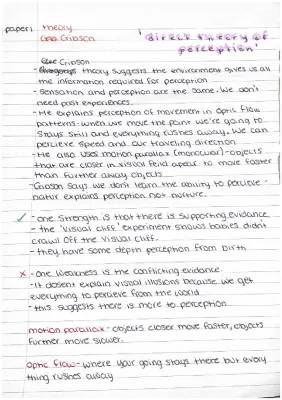 paper 1 theory 'direct theory of
Gibson perception'
Gibson
- theory suggests the environment gives us all
the information required for perception
- Sensation and perception are the same. We don't
need past experiences.
- He explains perception of movement in Optic Flow
patterns - when we move the point we're going to
Stays still and everything rushes away. We can
percieve speed and our traveling direction.
- He also uses motion parallax (monocular) - objects
that are closer in visual feild apear to move faster
than further away objects
- Gibson says we don't learn the ability to percieve -
natur explains perception not nurture.
✓ - one strength is that there is supporting evidence
- the 'visual cliff' experiment shows babies didn't
crawl off the visual cliff.
- they have some depth perception from birth
x - one weakness is the conflicting evidence.
- it dosent explain visual illusions because we get
everything to percieve from the world
- this suggests there is more to perception
motion parallax - objects closer move faster, objects
further move slower.
optic flow - where your going stays there but every
thing rushes away